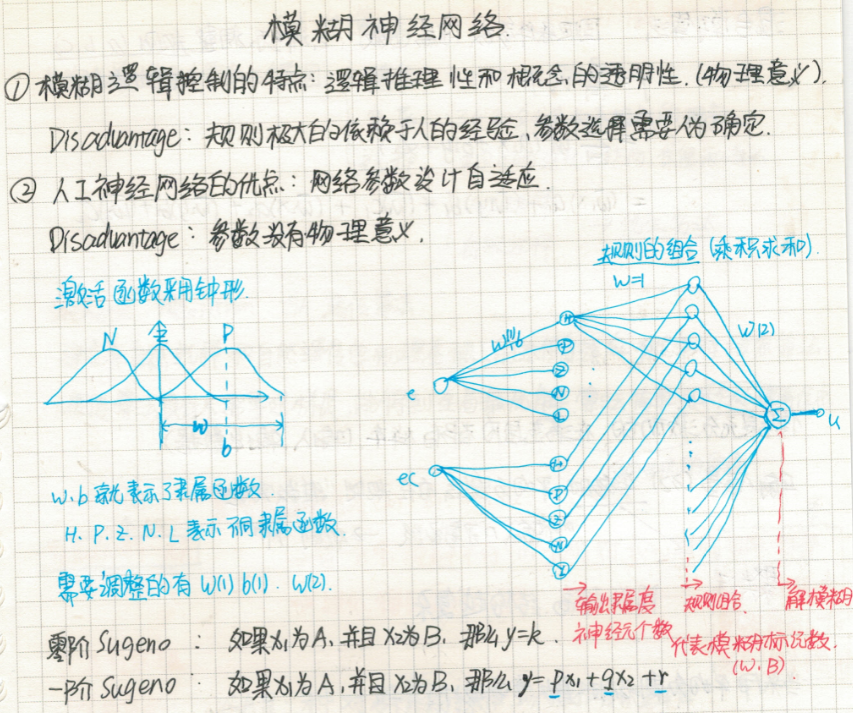 模糊神经网络.
① 模糊逻辑控制的特点: 逻辑推理性和概念的透明性. (物理意义).
Disadvantage: 规则极大的依赖于人的经验、参数选择需要人为确定.
② 人工神经网络的优点: 网络参数设计自适应.
Disadvantage: 参数没有物理意义.
规则的组合 (乘积求和).
激活函数采用钟形.
W=1
N Z P
W(2)
H
P
Z
N
L
e
w
b
Σ
u
ec
H
P
Z
N
L
w.b 就表示了隶属函数.
H. P. Z. N. L 表示不同隶属函数.
需要调整的有 W(1) b(1). W(2).
输出隶属度
规则组合.
解模糊
神经元个数
代表模糊标记数.
(W.B)
零阶 Sugeno : 如果x₁为A, 并且x₂为B, 那么 y=k.
一阶 Sugeno : 如果x₁为A, 并且x₂为B, 那么 y=px₁+qx₂+r